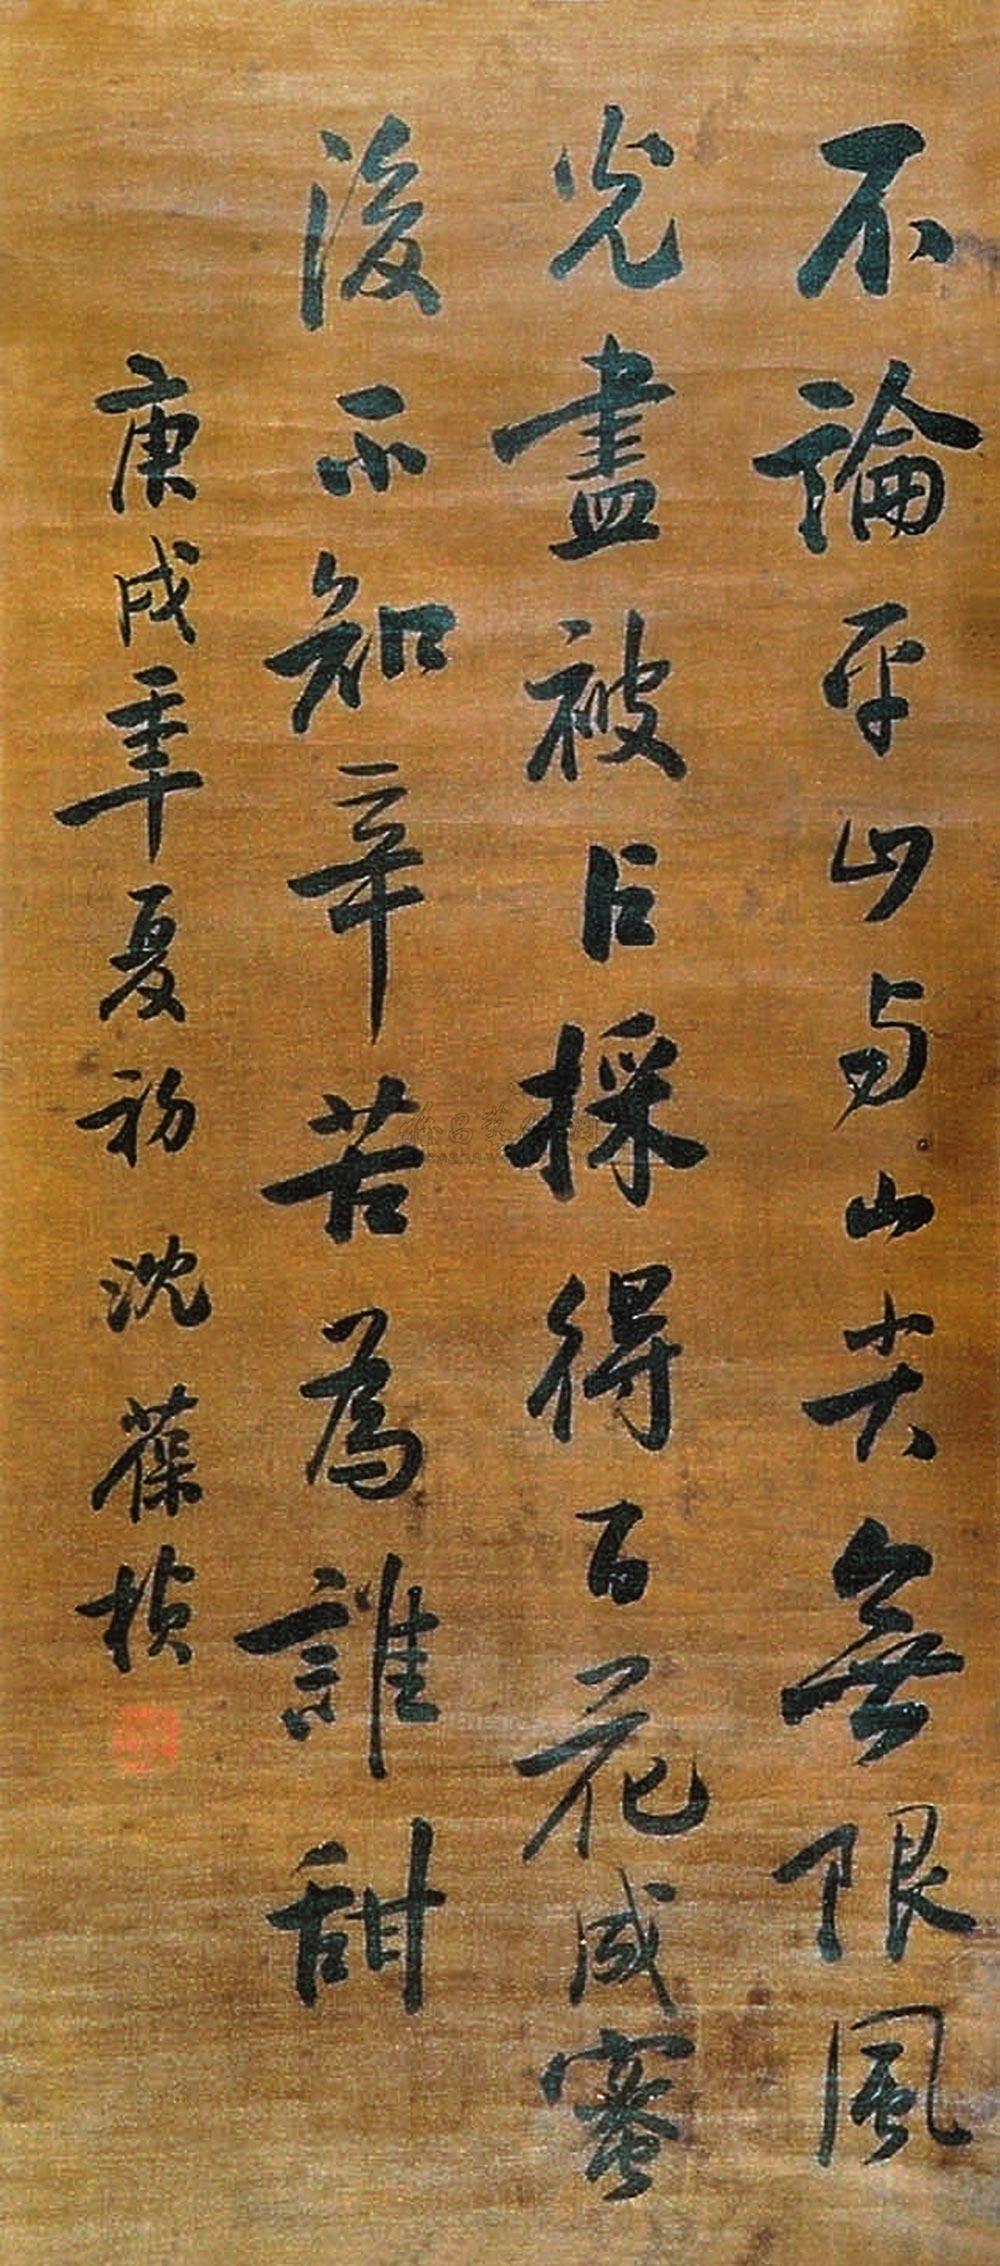 不論平山与山尖無限風
光盡被占採得百花成蜜
後不知辛苦為誰甜
庚戌年夏初沈葆楨